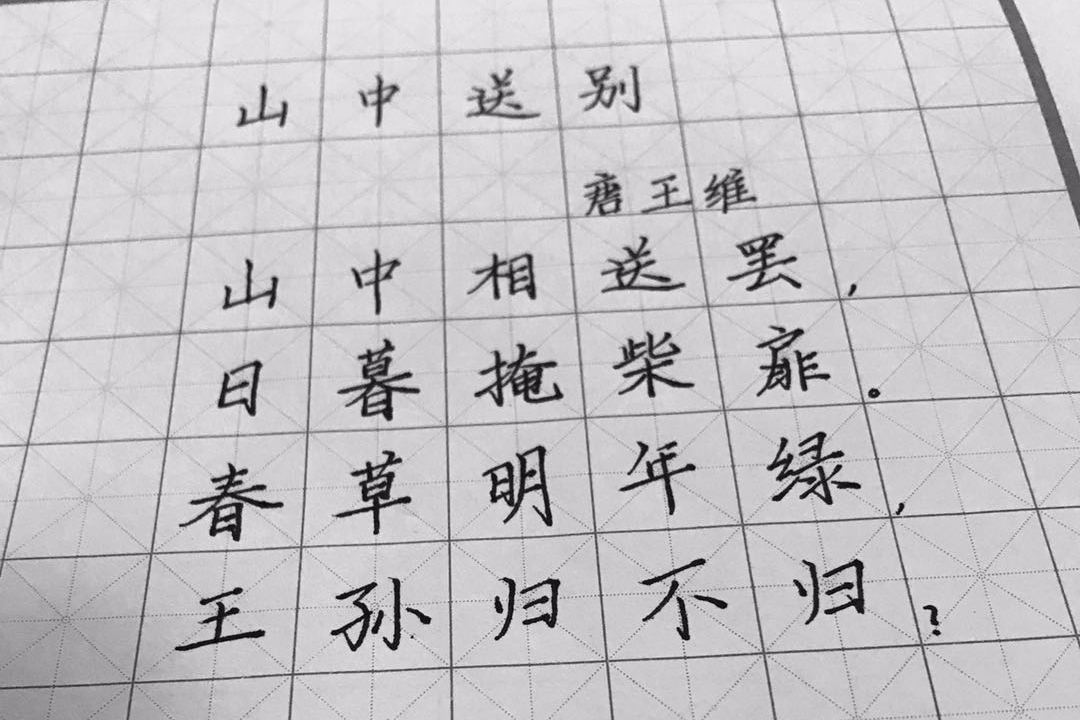 山中送别
唐王维
山中相送罢，
日暮掩柴扉。
春草明年绿，
王孙归不归？